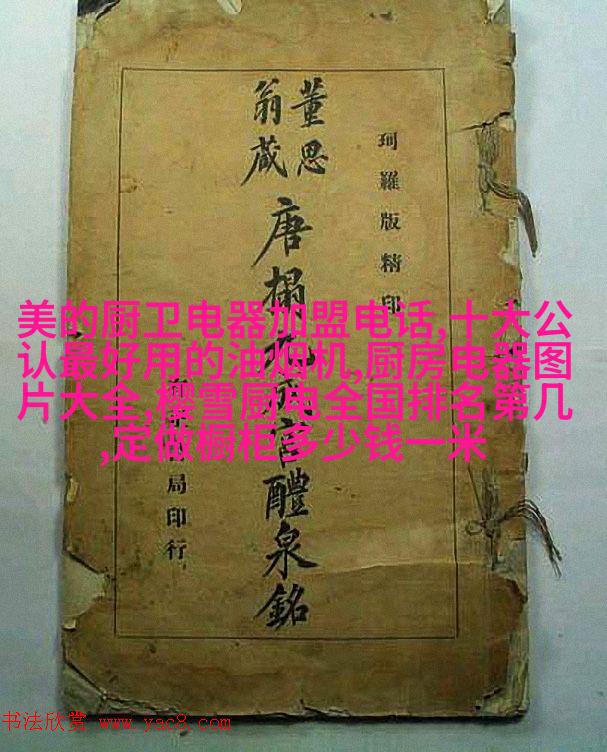 珂羅版精印
董思
翁藏
唐搨九成宮醴泉銘
局印行
美的厨卫电器加盟电话,十大公
认最好用的油烟机,厨房电器图
片大全,樱雪厨电全国排名第几
,定做橱柜多少钱一米
书法欣赏 www.yac8.com